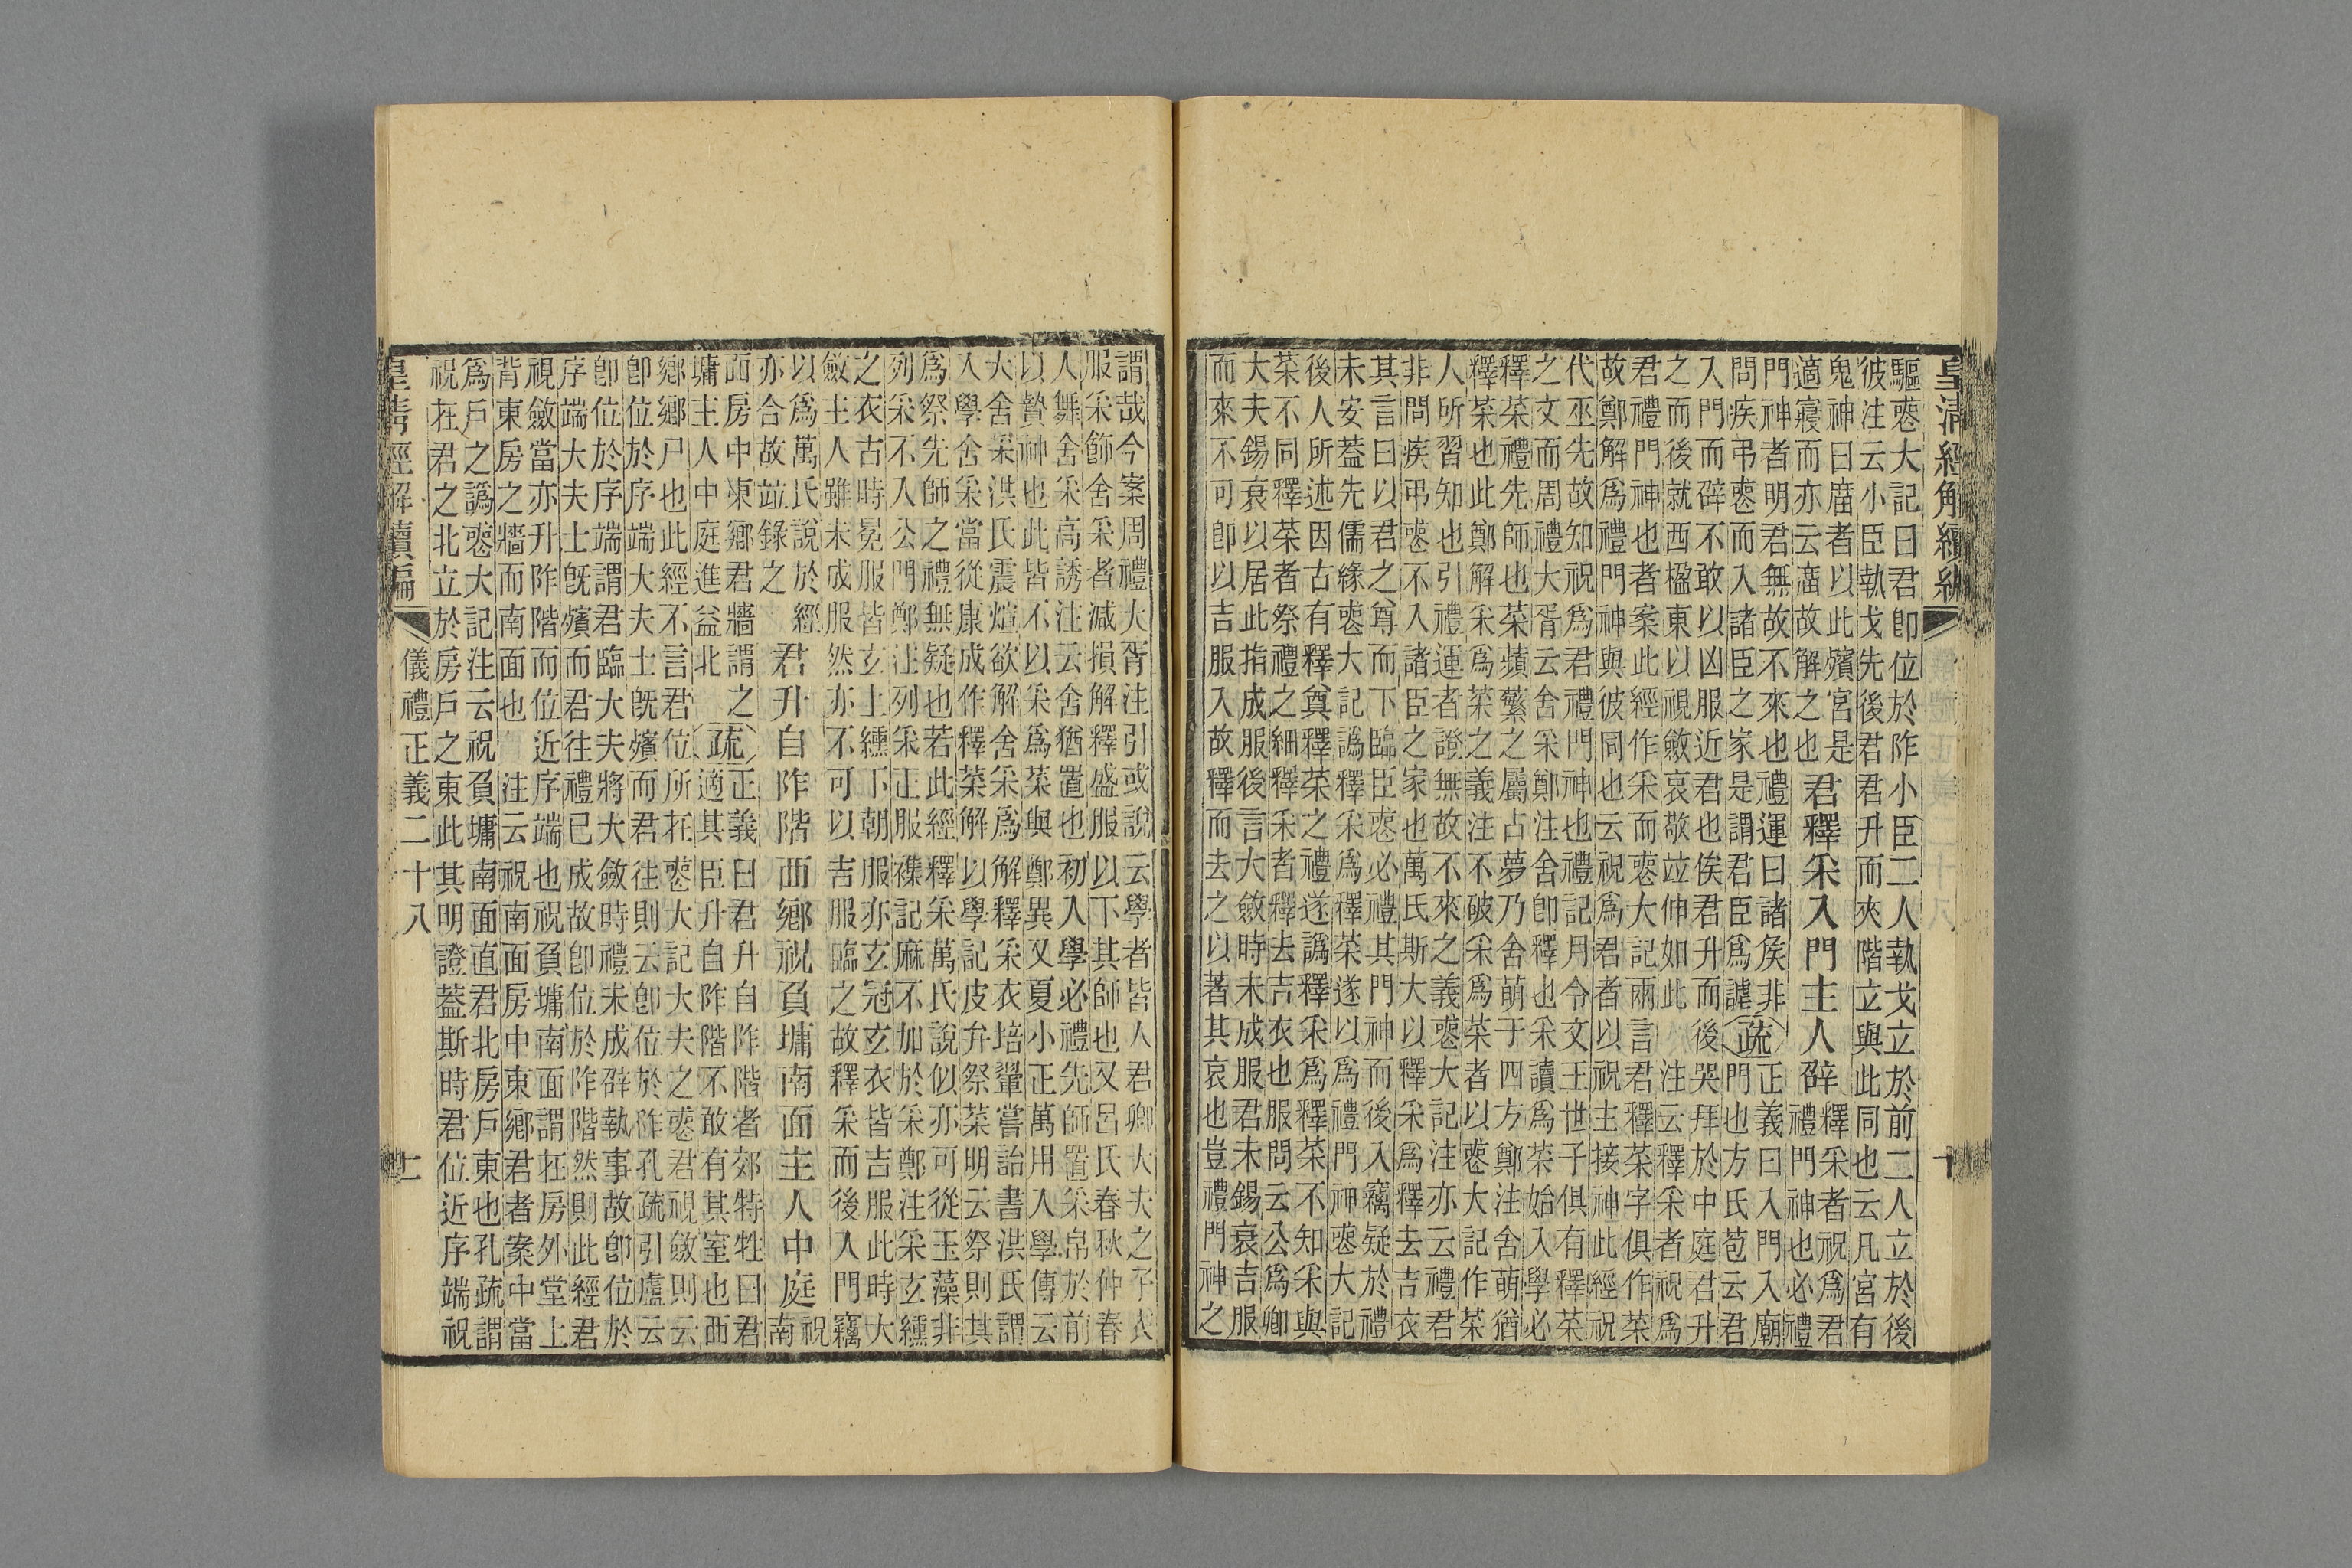 皇清經解續編
十
驅喪大記曰君即位於阼小臣二人執戈立於前二人立於後
彼注云小臣執戈先後君君升而夾階立與此同也云凡宮有
鬼神曰廟者以此殯宮是
適寢而亦云廟故解之也
君釋采入門主人辟
釋采者祝爲君
禮門神也必禮
門神者明君無故不來也禮運曰諸侯非
問疾弔喪而入諸臣之家是謂君臣爲謔
疏
正義曰入門入廟
門也方氏苞云君
入門而辟不敢以凶服近君也俟君升而後哭拜於中庭君升
之而後就西楹東以視斂哀敬竝伸如此　注云釋采者祝爲
君禮門神也者案此經作采而喪大記兩言君釋菜字俱作菜
故鄭解爲禮門神與彼同也云祝爲君者以祝主接神此經祝
代巫先故知祝爲君禮門神也禮記月令文王世子俱有釋菜
之文而周禮大胥云舍采鄭注舍即釋也采讀爲菜始入學必
釋菜禮先師也菜蘋蘩之屬占夢乃舍萌于四方鄭注舍萌猶
釋菜也此鄭解采爲菜之義注不破采爲菜者以喪大記作菜
人所習知也引禮運者證無故不來之義喪大記注亦云禮君
非問疾弔喪不入諸臣之家也萬氏斯大以釋采爲釋去吉衣
其言曰以君之尊而下臨臣喪必禮其門神而後入竊疑於禮
未安蓋先儒緣喪大記譌釋采爲釋菜遂以爲禮門神喪大記
後人所述因古有釋奠釋菜之禮遂譌釋采爲釋菜不知采與
菜不同釋菜者祭禮之細釋采者釋去吉衣也服問云公爲卿
大夫錫衰以居此指成服後言大斂時未成服君未錫衰吉服
而來不可即以吉服入故釋而去之以著其哀也豈禮門神之
謂哉今案周禮大胥注引或說云學者皆人君卿大夫之子衣
服采飾舍采者減損解釋盛服以下其師也又呂氏春秋仲春
人舞舍采高誘注云舍猶置也初入學必禮先師置采帛於前
以贄神也此皆不以采爲菜與鄭異又夏小正萬用入學傳云
大舍采洪氏震煊欲解舍采爲解釋采衣培翬嘗詒書洪氏謂
入學舍采當從康成作釋菜解以學記皮弁祭菜明云祭則其
爲祭先師之禮無疑也若此經釋采萬氏說似亦可從玉藻非
列采不入公門鄭注列采正服襍記麻不加於采鄭注采玄纁
之衣古時冕服皆玄上纁下朝服亦玄冠玄衣皆吉服此時大
斂主人雖未成服然亦不可以吉服臨之故釋采而後入門竊
以爲萬氏說於經
亦合故竝錄之
君升自阼階西鄉祝負墉南面主人中庭
祝
南
面房中東鄉君牆謂之
墉主人中庭進益北
疏
正義曰君升自阼階者郊特牲曰君
適其臣升自阼階不敢有其室也西
鄉鄉尸也此經不言君位所在喪大記大夫之喪君視斂則云
即位於序端大夫士既殯而君往則云即位於阼孔疏引盧云
即位於序端謂君臨大夫將大斂時禮未成辟執事故即位於
序端大夫士既殯而君往禮已成故即位於阼階然則此經君
視斂當亦升阼階而位近序端也祝負墉南面謂在房外堂上
背東房之牆而南面也　注云祝南面房中東鄉君者案中當
爲戶之譌喪大記注云祝負墉南面直君北房戶東也孔疏謂
祝在君之北立於房戶之東此其明證蓋斯時君位近序端祝
皇清經解續編
儀禮正義二十八